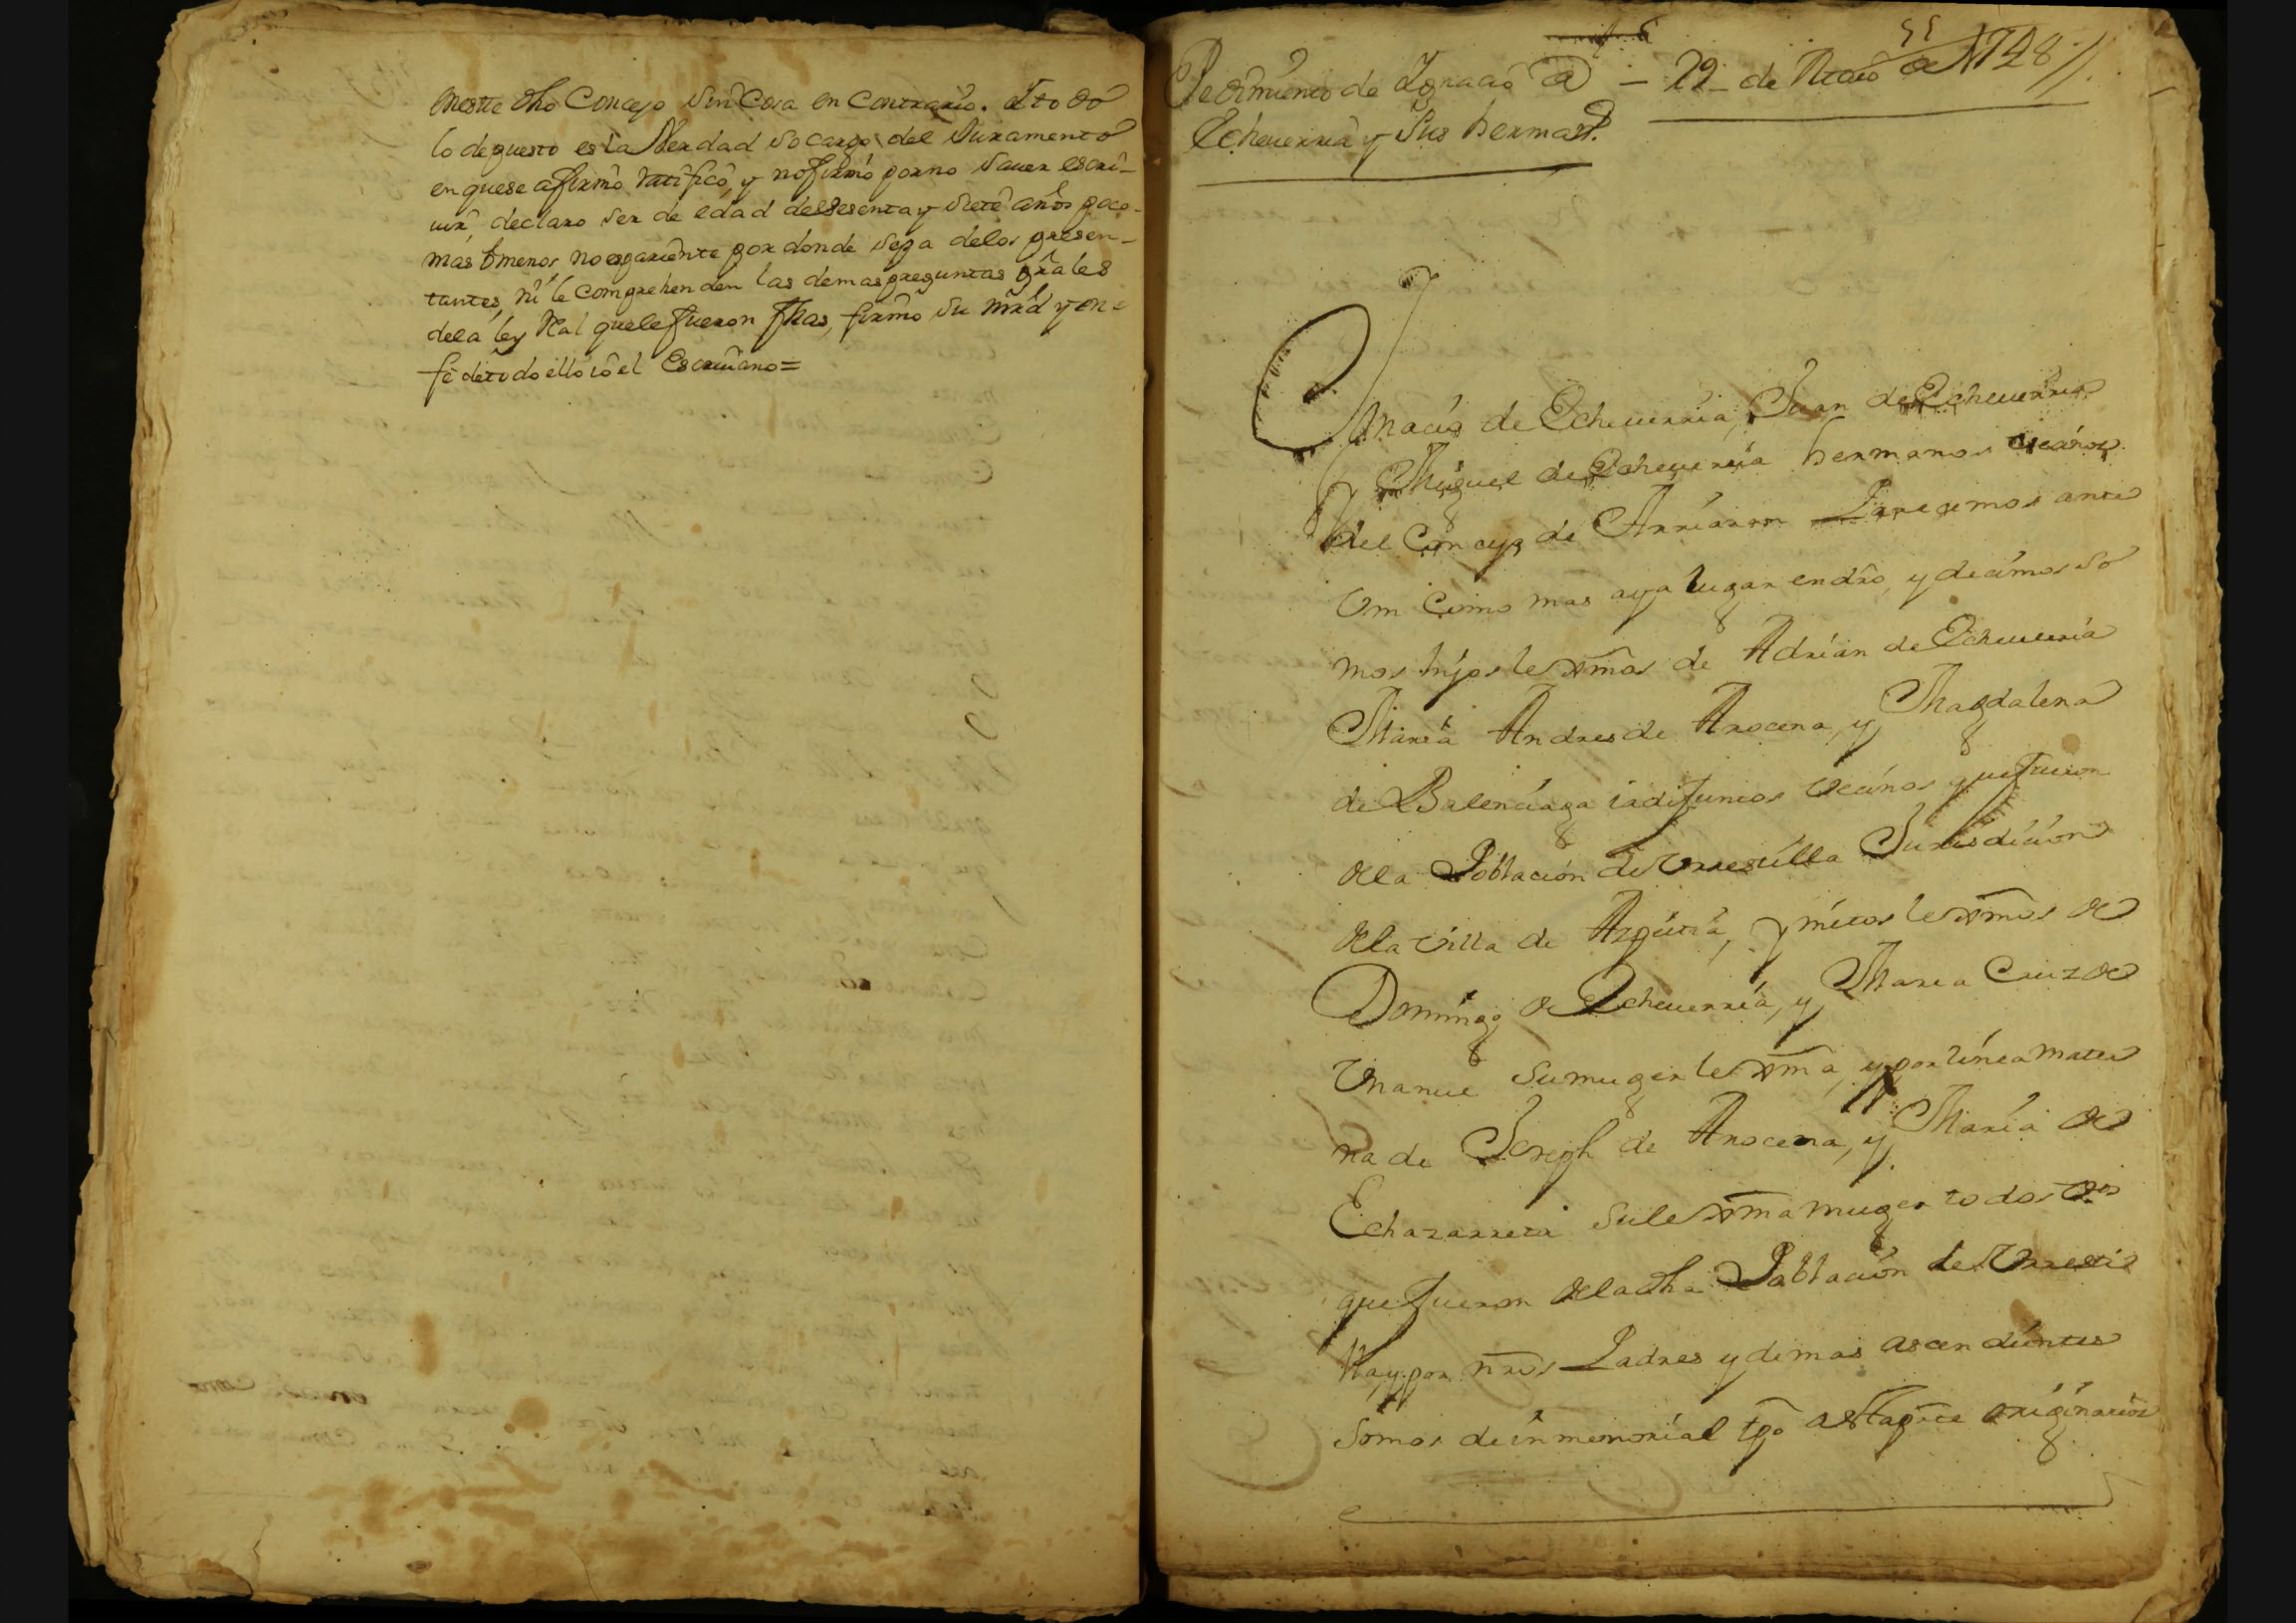 eneste dho Concejo sin Cosa en Contrario. I todo
lo depuesto es la Verdad so cargo del Juramento
en que se afirmô ratificô, y no firmô por no Sauer escri-
uir, declaro ser de edad de sesenta y siete años poco
mas ô menos no es pariente por donde sepa de los presen-
tantes, ni le comprehenden las demas preguntas grâles
de la ley Real que le fueron fhas, firmô su mrd y en
feê de todo ello iô el Escriuano=
55
Pedimiento de Ignacio de — 29 de de 1748 //.
Echeuerria y sus herms.
Ignacio de Echeuerria, Juan de Echeuerria
y Miguel de Echeuerria hermanos vecinos
del Concejo de Arriaran Parecemos ante
Vm como mas aya lugar en dro, y decimos so
mos hijos lexmos de Adrian de Echeuerria
Maria Andres de Arocena, y Magdalena
de Balenciaga ia difuntos vecinos que fueron
de la Poblacion de Vrrestilla Jurisdicion
de la villa de Azpeitia, y nietos lexmos de
Domingo de Echeuerria, y Maria Cruz de
Vnanue su muger lexma, y por linea mater
na de Joseph de Arocena, y Maria de
Echazarreta su lexma muger todos vos
que fueron de la dha Poblacion de Vrresti
lla y por nros Padres y demas ascendientes
Somos de inmemorial tpo a esta pte originarios